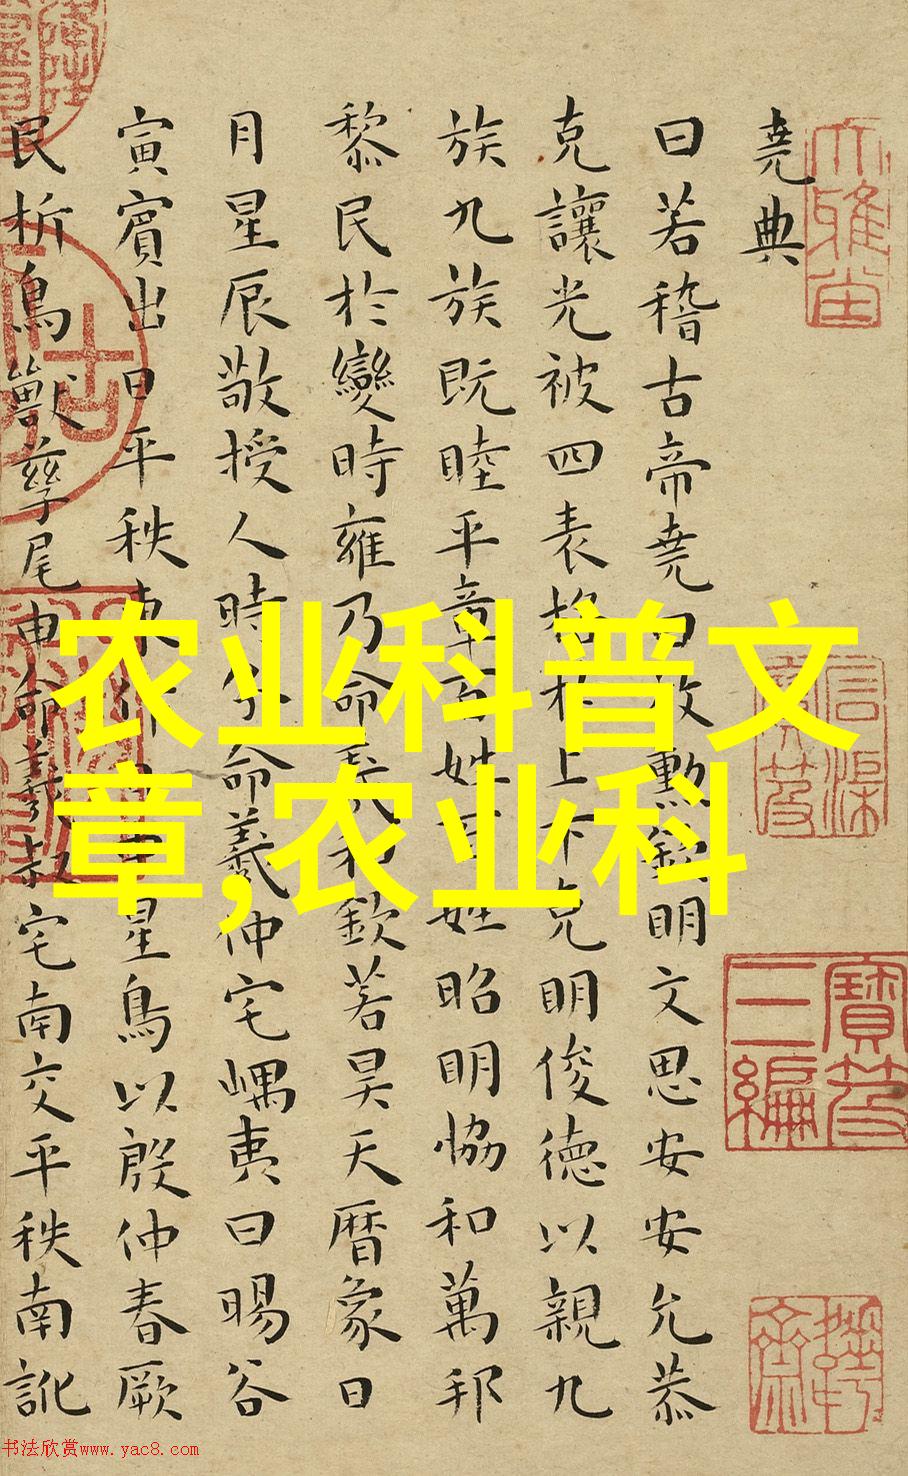 堯典
曰若稽古帝堯曰放勲欽明文思安安允恭
克讓光被四表格於上下克明俊德以親九
族九族既睦平章百姓百姓昭明恊和萬邦
黎民於變時雍乃命羲和欽若昊天暦象日
月星辰敬授人時分命羲仲宅嵎夷曰暘谷
寅賓出日平秩東作日中星鳥以殷仲春厥
民析鳥獸孳尾申命羲叔宅南交平秩南訛
寶笈
三編
农业科普文
章,农业科
书法欣赏www.yac8.com